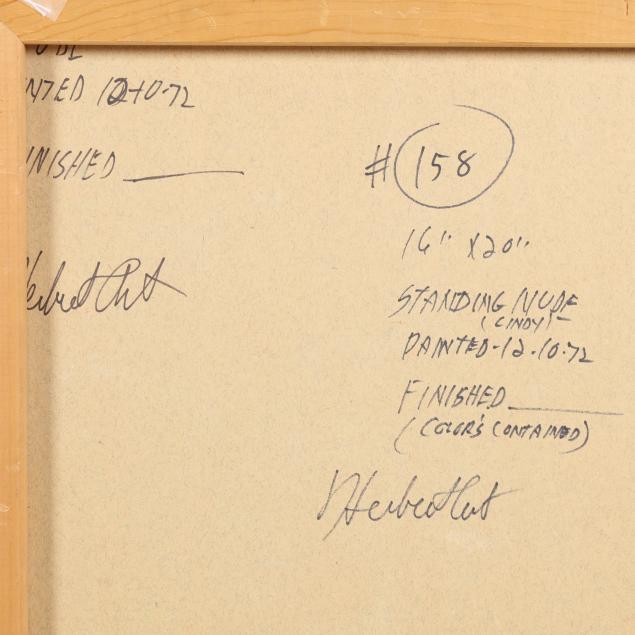 UDE
NTED 12-10-72
INISHED
#158
16" X20"
STANDING NUDE
(CINDY)
PAINTED-12.10.72
FINISHED
(COLOR'S CONTAINED)